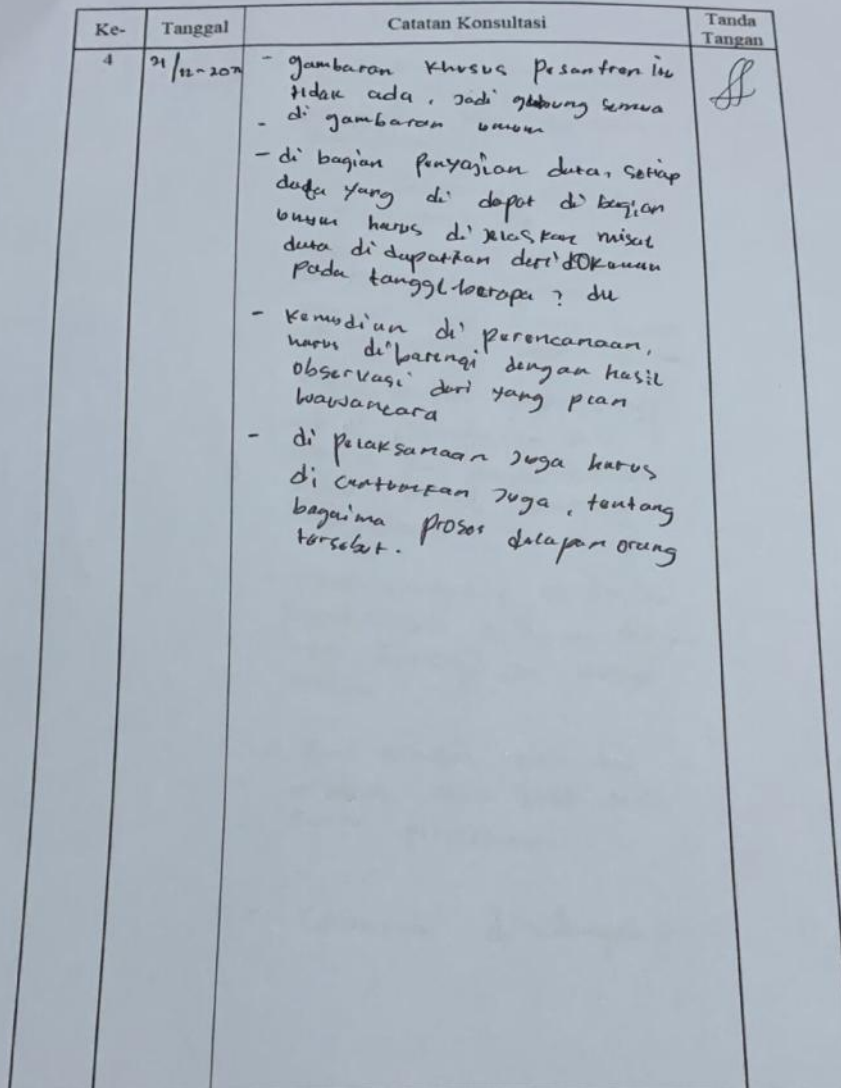 Ke- Tanggal Catatan Konsultasi Tanda Tangan
4 21/12-202
- gambaran khusus pesantren itu
tidak ada, jadi gabung semua
- di gambaran umum
- di bagian penyajian data, setiap
data yang di dapat di bagian
umum harus di jelaskan misal
data di dapatkan dari dokumen
pada tanggl berapa ? du
- kemudian di perencanaan,
harus di barengi dengan hasil
observasi dari yang
wawancara
- di pelaksanaan juga harus
di cantumkan juga, tentang
bagaima proses delapan orang
tersebut.